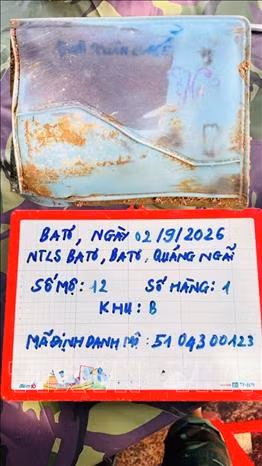 BATƠ, NGÀY 02/9/2026
NTLS BATƠ, BATƠ, QUẢNG NGÃI
SỐ MỘ: 12 SỐ HÀNG: 1
KHU: B
MÃ ĐỊNH DANH MỘ: 5104300123